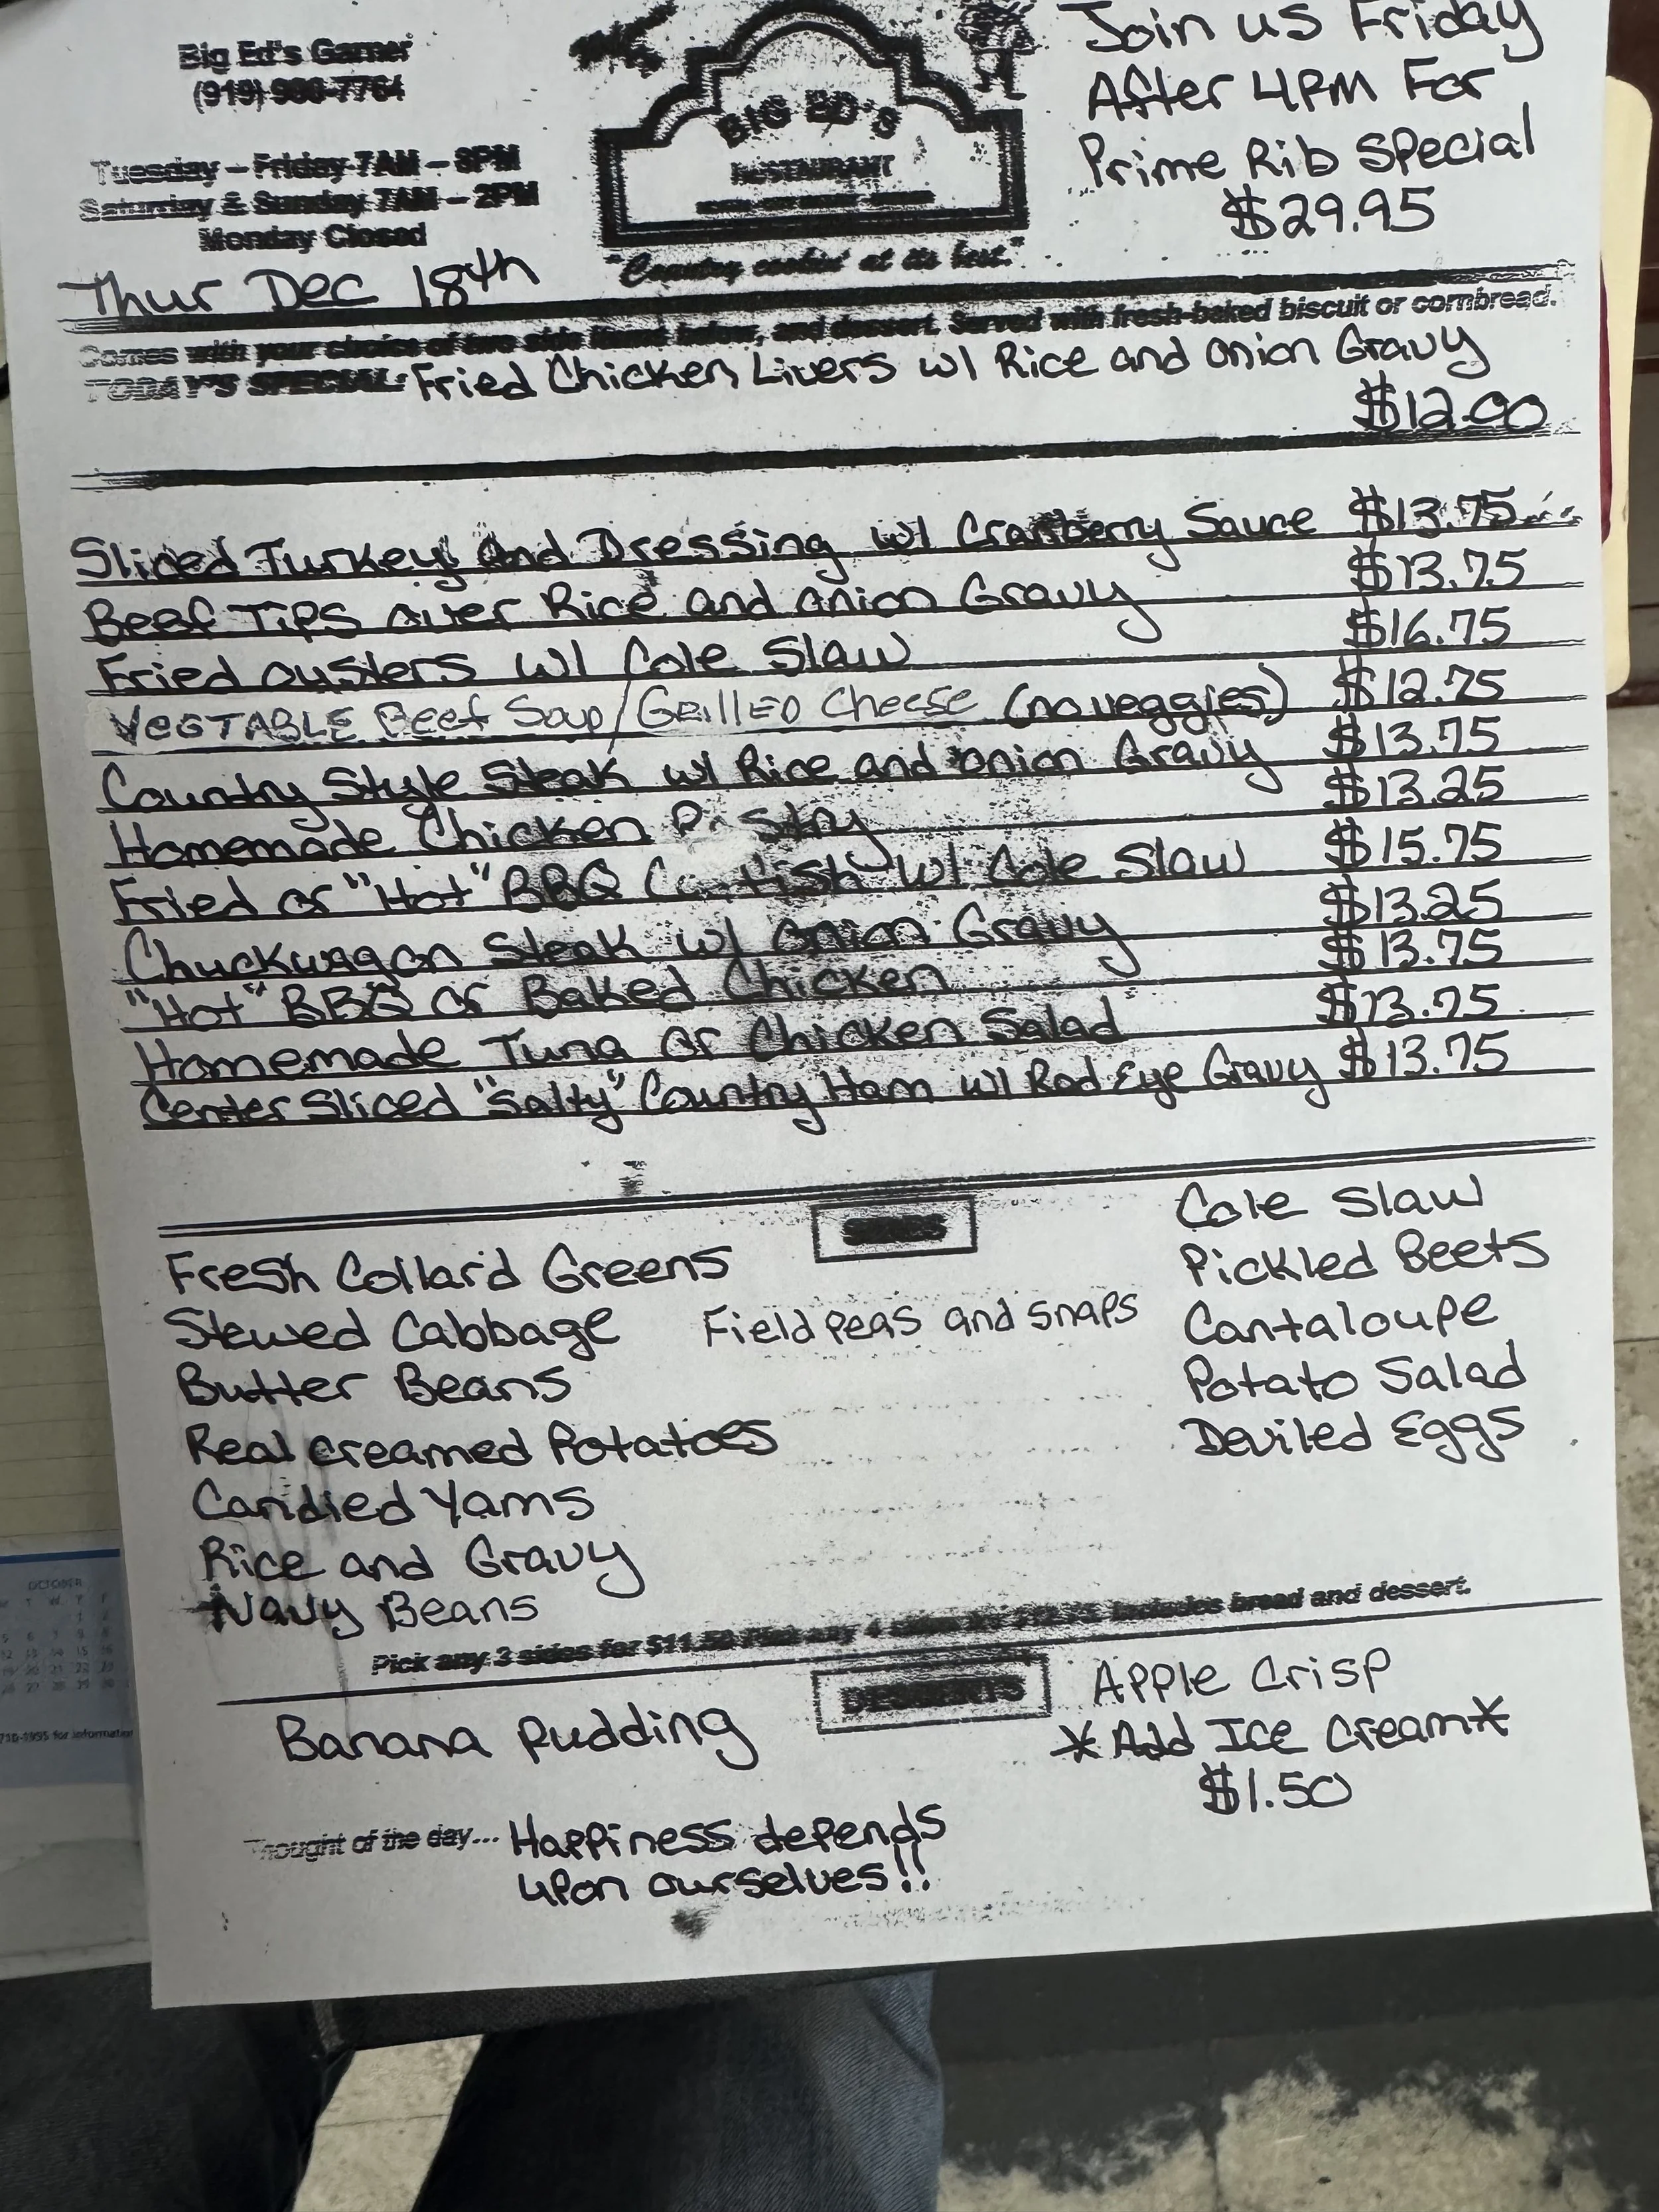 Big Ed's Garner
(919)
Tuesday – Friday 7AM – 8PM
Saturday & Sunday 7AM – 2PM
Monday Closed
BIG ED'S
RESTAURANT
"Country cookin' at its best."
Join us Friday
After 4PM For
Prime Rib Special
$29.95
Thur Dec 18th
Comes with your choice of two side items below, and dessert. Served with fresh-baked biscuit or cornbread.
TODAY'S SPECIAL: Fried Chicken Livers w/ Rice and Onion Gravy
$12.00
Sliced Turkey And Dressing w/ Cranberry Sauce $13.75
Beef Tips over Rice and onion Gravy $13.75
Fried oysters w/ Cole Slaw $16.75
VEGTABLE Beef Soup/GRILLED Cheese (no veggies) $12.75
Country Style Steak w/ Rice and onion Gravy $13.75
Homemade Chicken Pastry $13.25
Fried or "Hot" BBQ Catfish w/ Cole Slaw $15.75
Chuckwagon Steak w/ onion Gravy $13.25
"Hot" BBQ or Baked Chicken $13.75
Homemade Tuna or Chicken Salad $13.75
Center Sliced "Salty" Country Ham w/ Red Eye Gravy $13.75
SIDES
Fresh Collard Greens
Stewed Cabbage
Butter Beans
Real creamed Potatoes
Candied Yams
Rice and Gravy
Navy Beans
Field peas and snaps
Cole Slaw
Pickled Beets
Cantaloupe
Potato Salad
Deviled Eggs
Pick any 3 sides for $11.50 Pick any 4 sides for Includes bread and dessert.
DESSERTS
Banana Pudding
Apple Crisp
*Add Ice Cream*
$1.50
Thought of the day... Happiness depends
upon ourselves!!
OCTOBER
for information